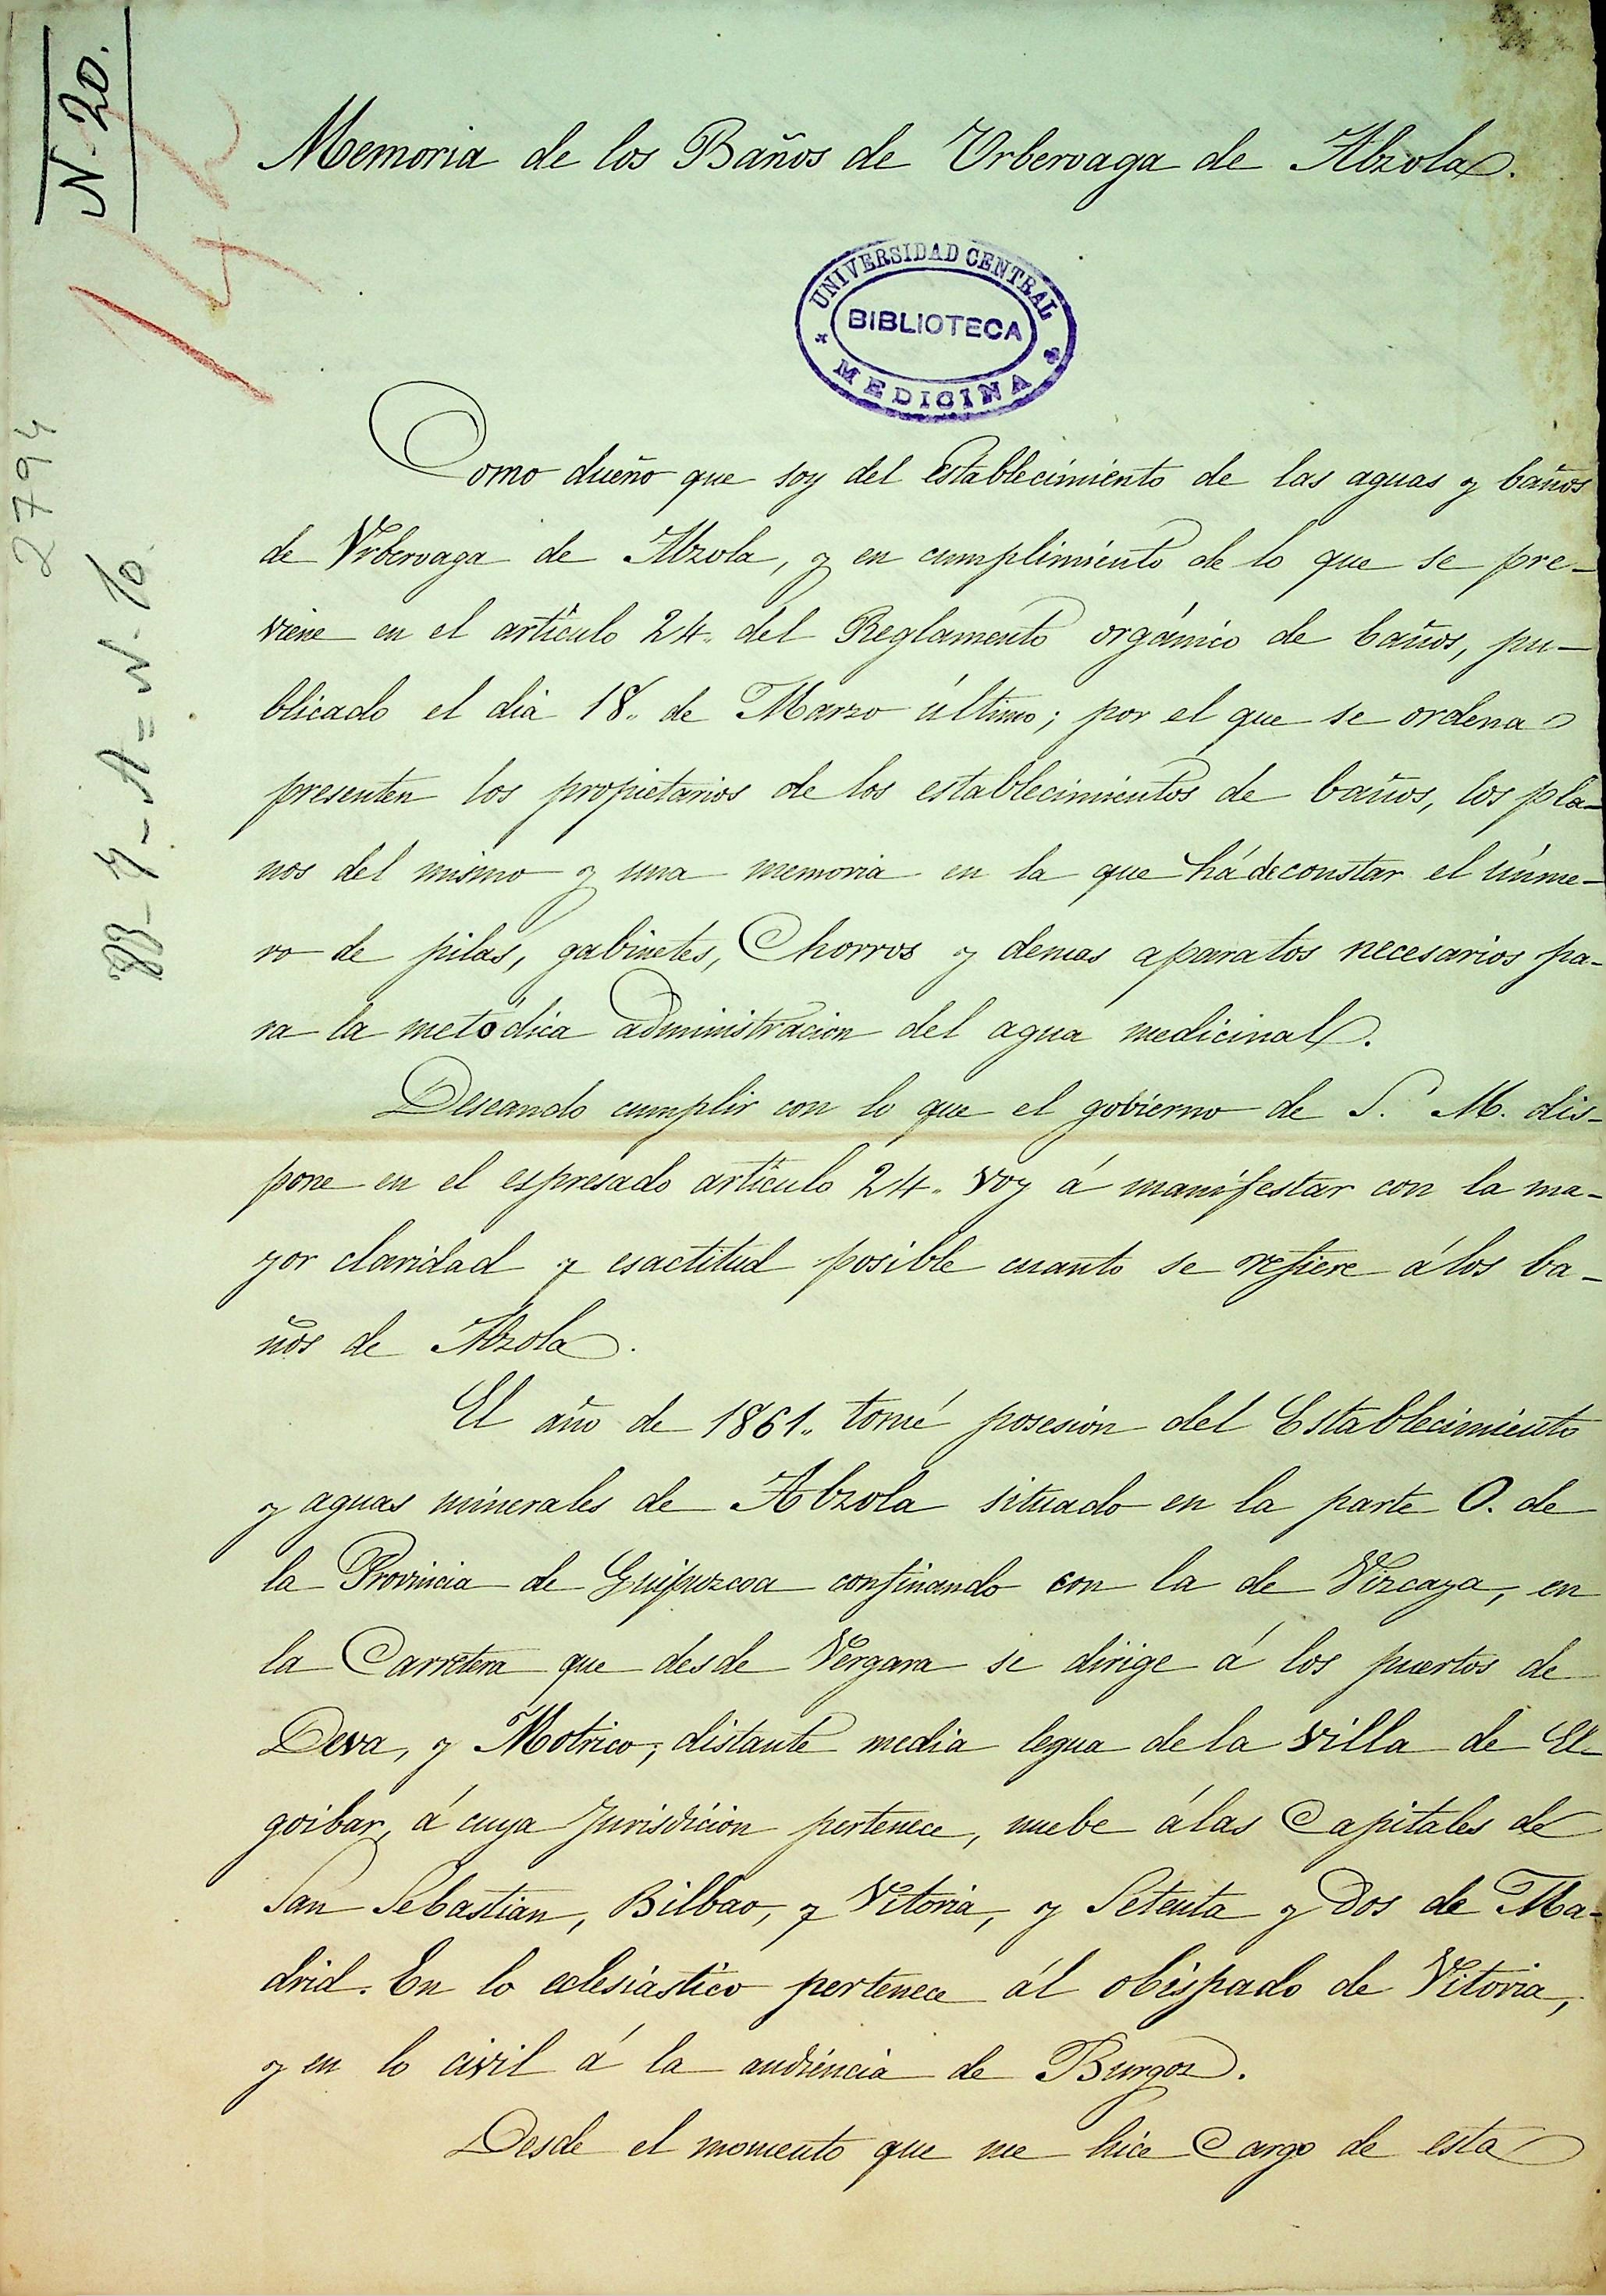 N. 20.
2794
88-4-A=N.6.
Memoria de los Baños de Urberoaga de Alzola.
UNIVERSIDAD CENTRAL
BIBLIOTECA
MEDICINA
Como dueño que soy del establecimiento de las aguas y baños
de Urberoaga de Alzola, y en cumplimiento de lo que se pre-
viene en el artículo 24. del Reglamento orgánico de baños, pu-
blicado el dia 18. de Marzo último; por el que se ordena
presenten los propietarios de los establecimientos de baños, los pla-
nos del mismo y una memoria en la que há de constar el núme-
ro de pilas, gabinetes, Chorros y demas aparatos necesarios pa-
ra la metódica administracion del agua medicinal.
Deseando cumplir con lo que el gobierno de S. M. dis-
pone en el espresado artículo 24. voy á manifestar con la ma-
yor claridad y esactitud posible cuanto se refiere á los ba-
ños de Alzola.
El año de 1861. tomé posesion del Establecimiento
y aguas minerales de Alzola situado en la parte O. de
la Provincia de Guipuzcoa confinando con la de Vizcaya, en
la Carretera que desde Vergara se dirige á los puertos de
Deva, y Motrico, distante media legua de la villa de El-
goibar, á cuya Jurisdicion pertenece, nuebe á las Capitales de
San Sebastian, Bilbao, y Vitoria, y Setenta y Dos de Ma-
drid. En lo eclesiástico pertenece ál obispado de Vitoria,
y en lo civil á la audiencia de Burgos.
Desde el momento que me hice Cargo de esta